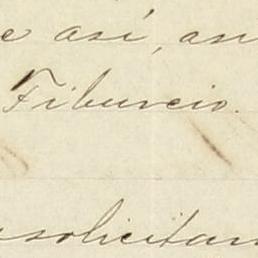 e así, an
Tiburcio.
solicitan